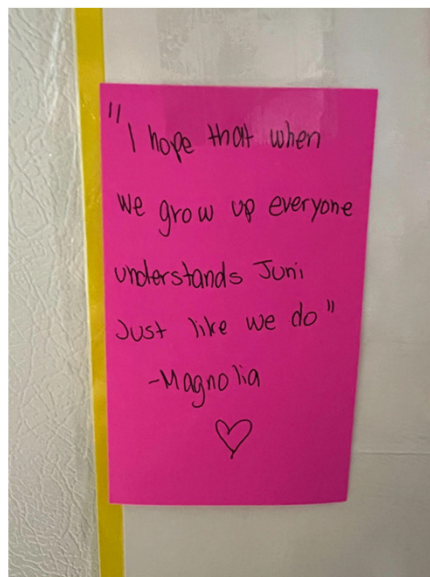 "I hope that when
we grow up everyone
understands Juni
Just like we do"
-Magnolia